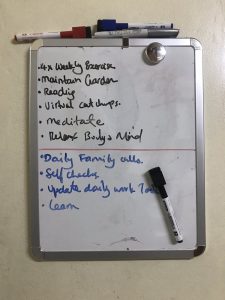 • 4x Weekly Exercise
• Maintain Garden
• Reading
• Virtual catchups.
• Meditate
• Relax Body & Mind
• Daily Family calls.
• Self checks
• Update daily work
• Learn